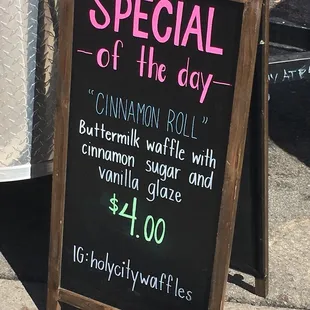 SPECIAL
—of the day—
"CINNAMON ROLL"
Buttermilk waffle with
cinnamon sugar and
vanilla glaze
$4.00
IG:holycitywaffles